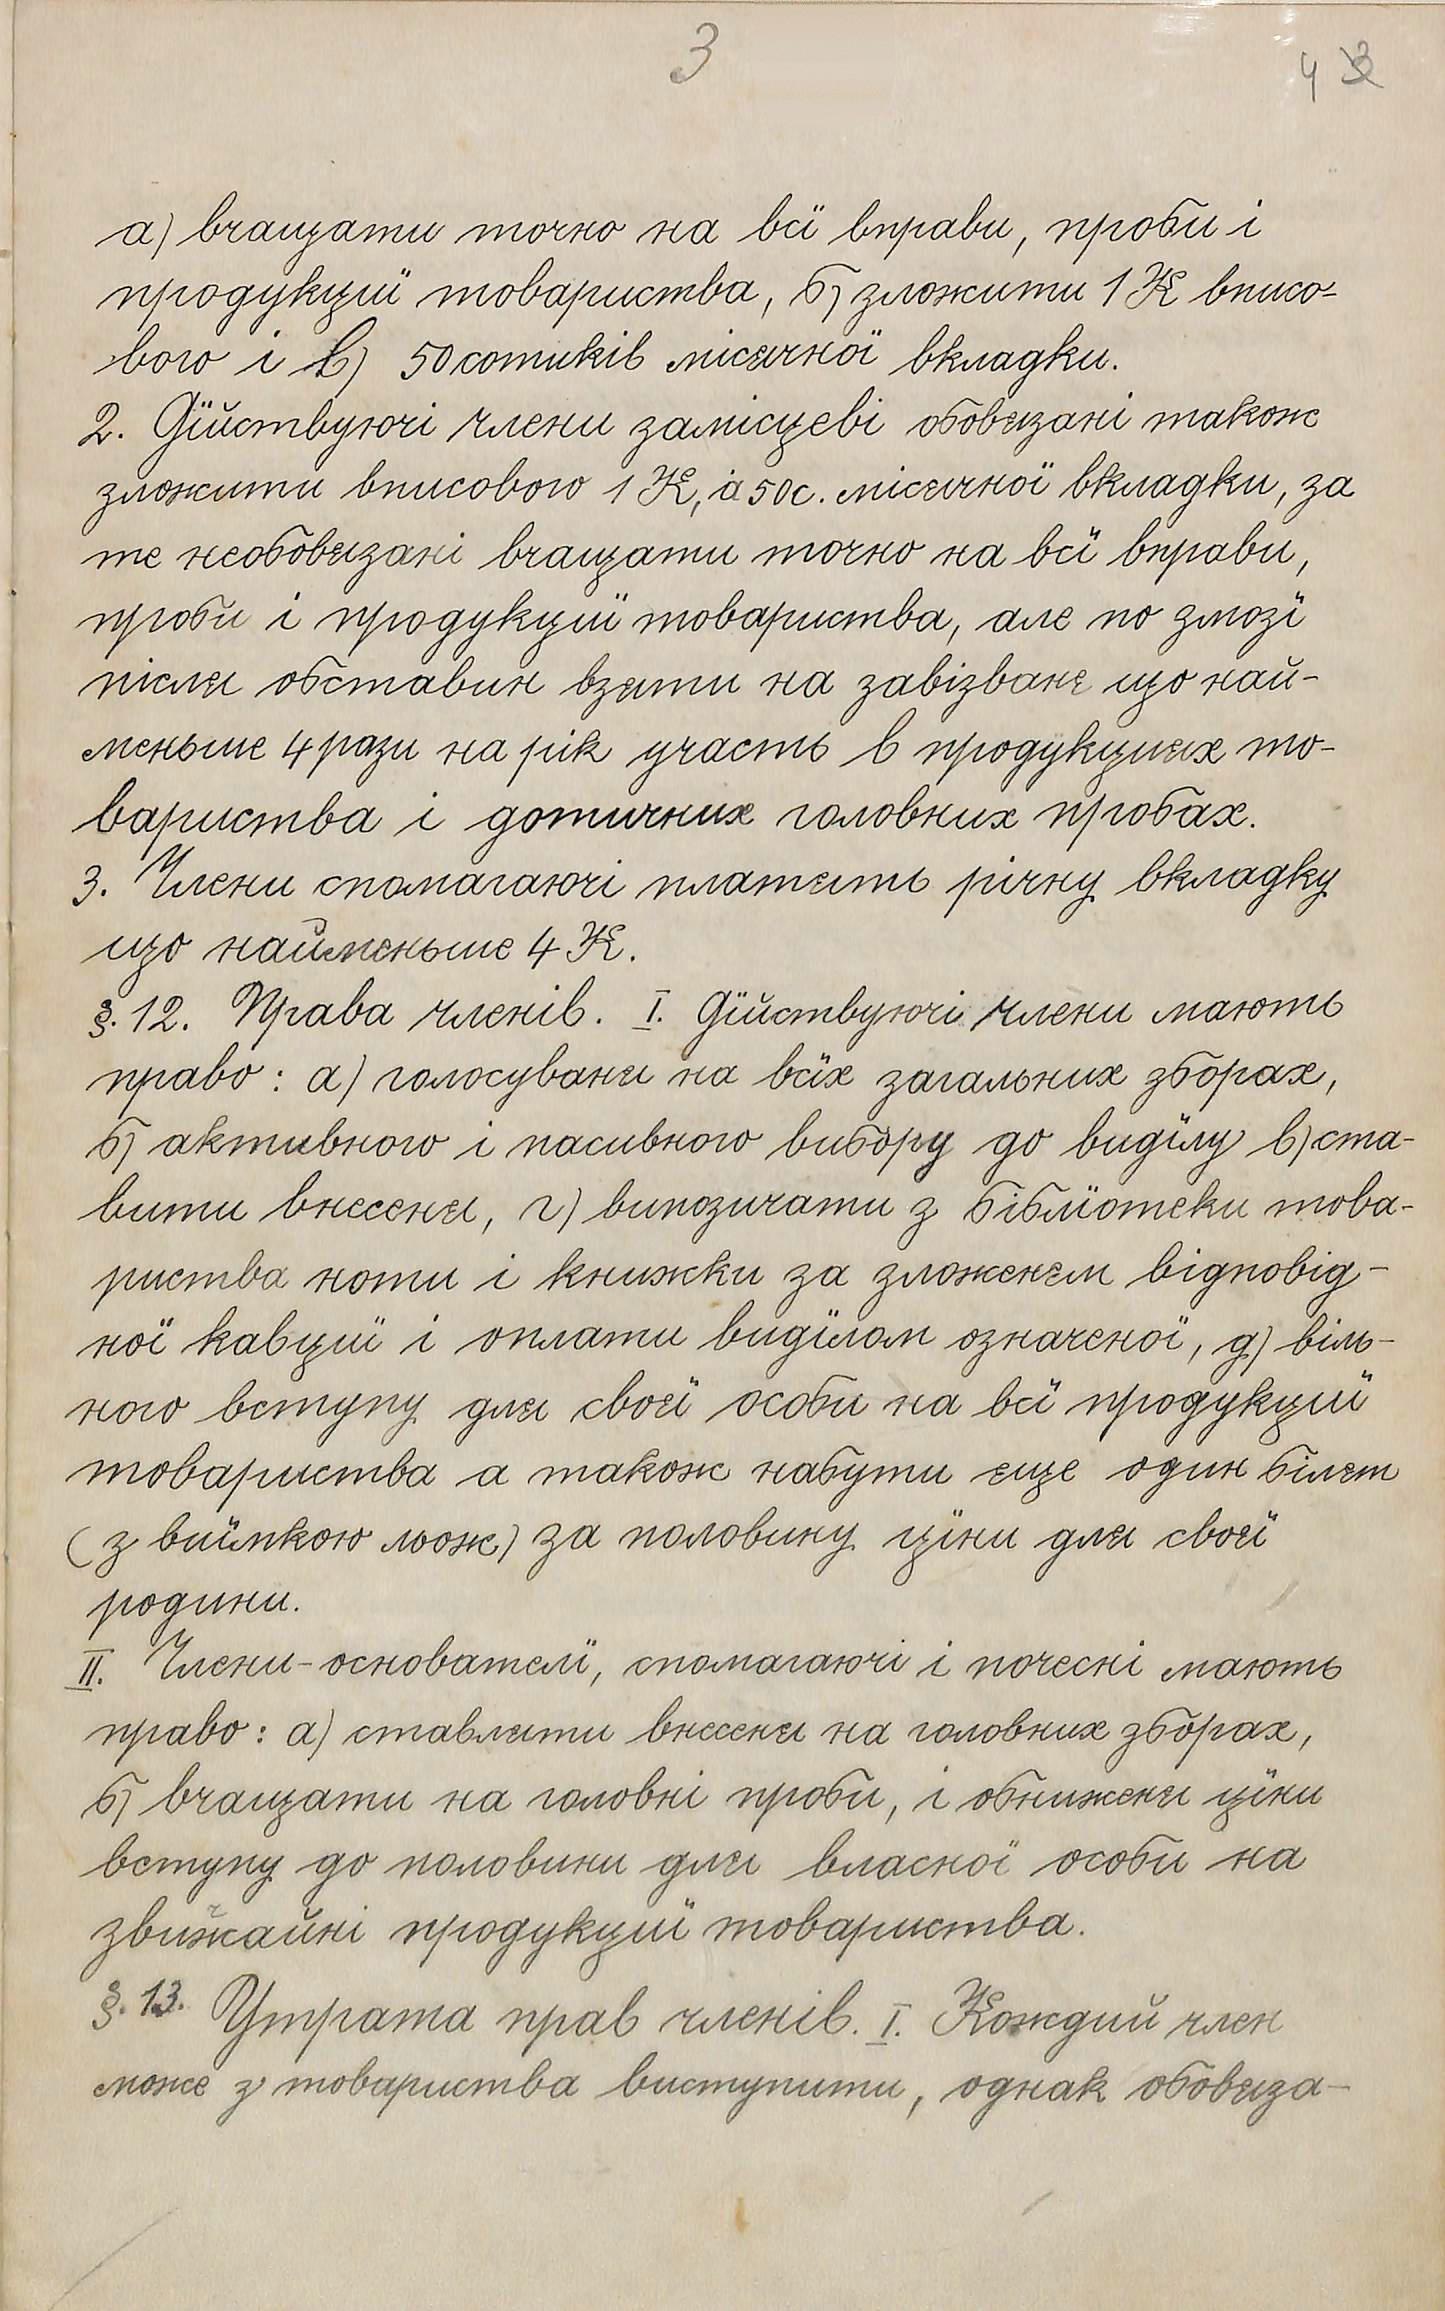 3
4 3
а) вчащати точно на всї вправи, проби і
продукциї товариства, б) зложити 1 К вписо-
вого і в) 50 сотиків місячної вкладки.
2. Дїйствуючі члени замісцеві обовязані також
зложити вписового 1 К, і а 50 с. місячної вкладки, за
те необовязані вчащати точно на всї вправи,
проби і продукциї товариства, але по змозї
після обставин взяти на завізванє що най-
меньше 4 рази на рік участь в продукциях то-
вариства і дотичних головних пробах.
3. Члени спомагаючі платять річну вкладку
що найменьше 4 К.
§. 12. Права членів. I. Дїйствуючі члени мають
право: а) голосуваня на всїх загальних зборах,
б) активного і пасивного вибору до видїлу в) ста-
вити внесеня, г) випозичати з біблїотеки това-
риства ноти і книжки за зложенєм відповід-
ної кавциї і оплати видїлом означеної, д) віль-
ного вступу для своєї особи на всї продукциї
товариства а також набути єще один білєт
(з виїмкою льож) за половину цїни для своєї
родини.
II. Члени-основателї, спомагаючі і почесні мають
право: а) ставляти внесеня на головних зборах,
б) вчащати на головні проби, і обниженя цїни
вступу до половини для власної особи на
звичайні продукциї товариства.
§. 13. Утрата прав членів. I. Кождий член
може з товариства виступити, однак обовяза-